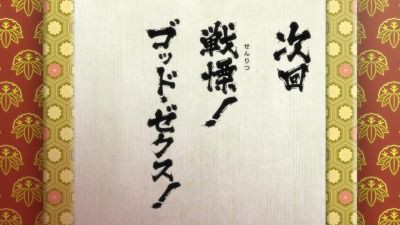 次回
戦慄！
せんりつ
ゴッド・ゼウス！